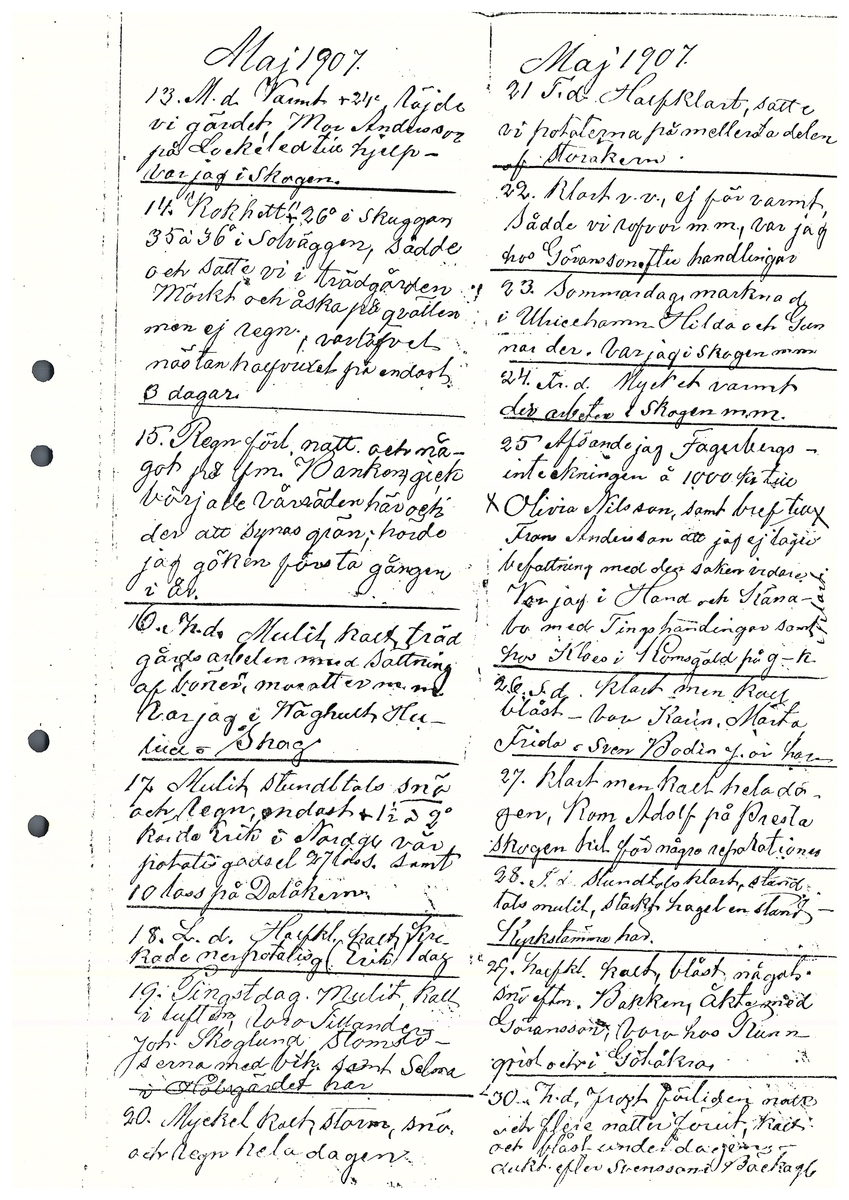 Maj 1907.
13. M.d. Varmt +24°, löjde
vi gärdet, Mor Andersson
på Lockeled till hjelp –
var jag i Skogen.
14. "Kokhett" + 26° i Skuggan
35 à 36° i Solväggen, sådde
och satte vi i trädgården
Mörkt och åska på qvällen
men ej regn; vart löfvet
nästan halfvuxet på endast
3 dagar.
15. Regn förl. natt. och nå-
got på fm.
började vårsäden här och
der att synas grön; hörde
jag göken första gången
i år.
16. Th.d. Mulit, kalt, träd
gårdsarbeten med sättning
af bönor, morötter m.m
Var jag i Häghult Hu-
Skog
17. Mulit, stundtals snö
och regn, endast + 1½ à 2°
körde Erik i Nordg. vår
potatisgödsel 27 lass. samt
10 lass på Dalåkern.
18. L.d. Halfkl. kalt, kr-
kade ner potatisg. (Erik) 1 dag
19. Pingstdag. Mulit, kallt
i luften, voro Tillander,
Joh. Skoglund Blomslö-
serna med vik. samt Selma
i Håbsgärdet här
20. Myckel kalt, storm, snö.
och regn hela dagen.
Maj 1907.
21 T.d. Halfklart, satte
vi potaterna på mellersta delen
af storåkern.
22. Klart v.v., ej för varmt,
sådde vi rofvor m.m., var jag
hos Göransson efter handlingar
23. Sommardagsmarknad
i Ulricehamn Hilda och Gun
nar der. Var jag i Skogen mm
24. Fr.d. Mycket varmt
div. arbeten i Skogen m.m.
25 Afsände jag Fagerbergs –
inteckningen å 1000 Kr till
x Olivia Nilsson, samt bref till x
Frans Andersson att jag ej tager
befattning med den saken vidare
Var jag i Hand och Stäna-
bo med Tingshandlingar samt
hos Kloes i Romsgäld på g–k.
Klart
26. S.d. Klart men kall
blåst – var Karin, Märta
Frida o Sven Bodin f. ör här
27. Klart men kalt hela da-
gen, Kom Adolf på Presta
skogen hit för några reparationer
28. T.d. Stundtals klart, stund-
tals mulit, starkt hagel en stund –
Kyrkstämma har.
29. halfkl. kalt, blåst något
snö eftm. Bakken, Åkte med
Göransson, voro hos Runn
qvist och i Götåkra.
30. Th.d, frost förliden natt
och flere nätter förut, kalt
och blåst under dagen –
dukt. efter Svensson i Bäckagb